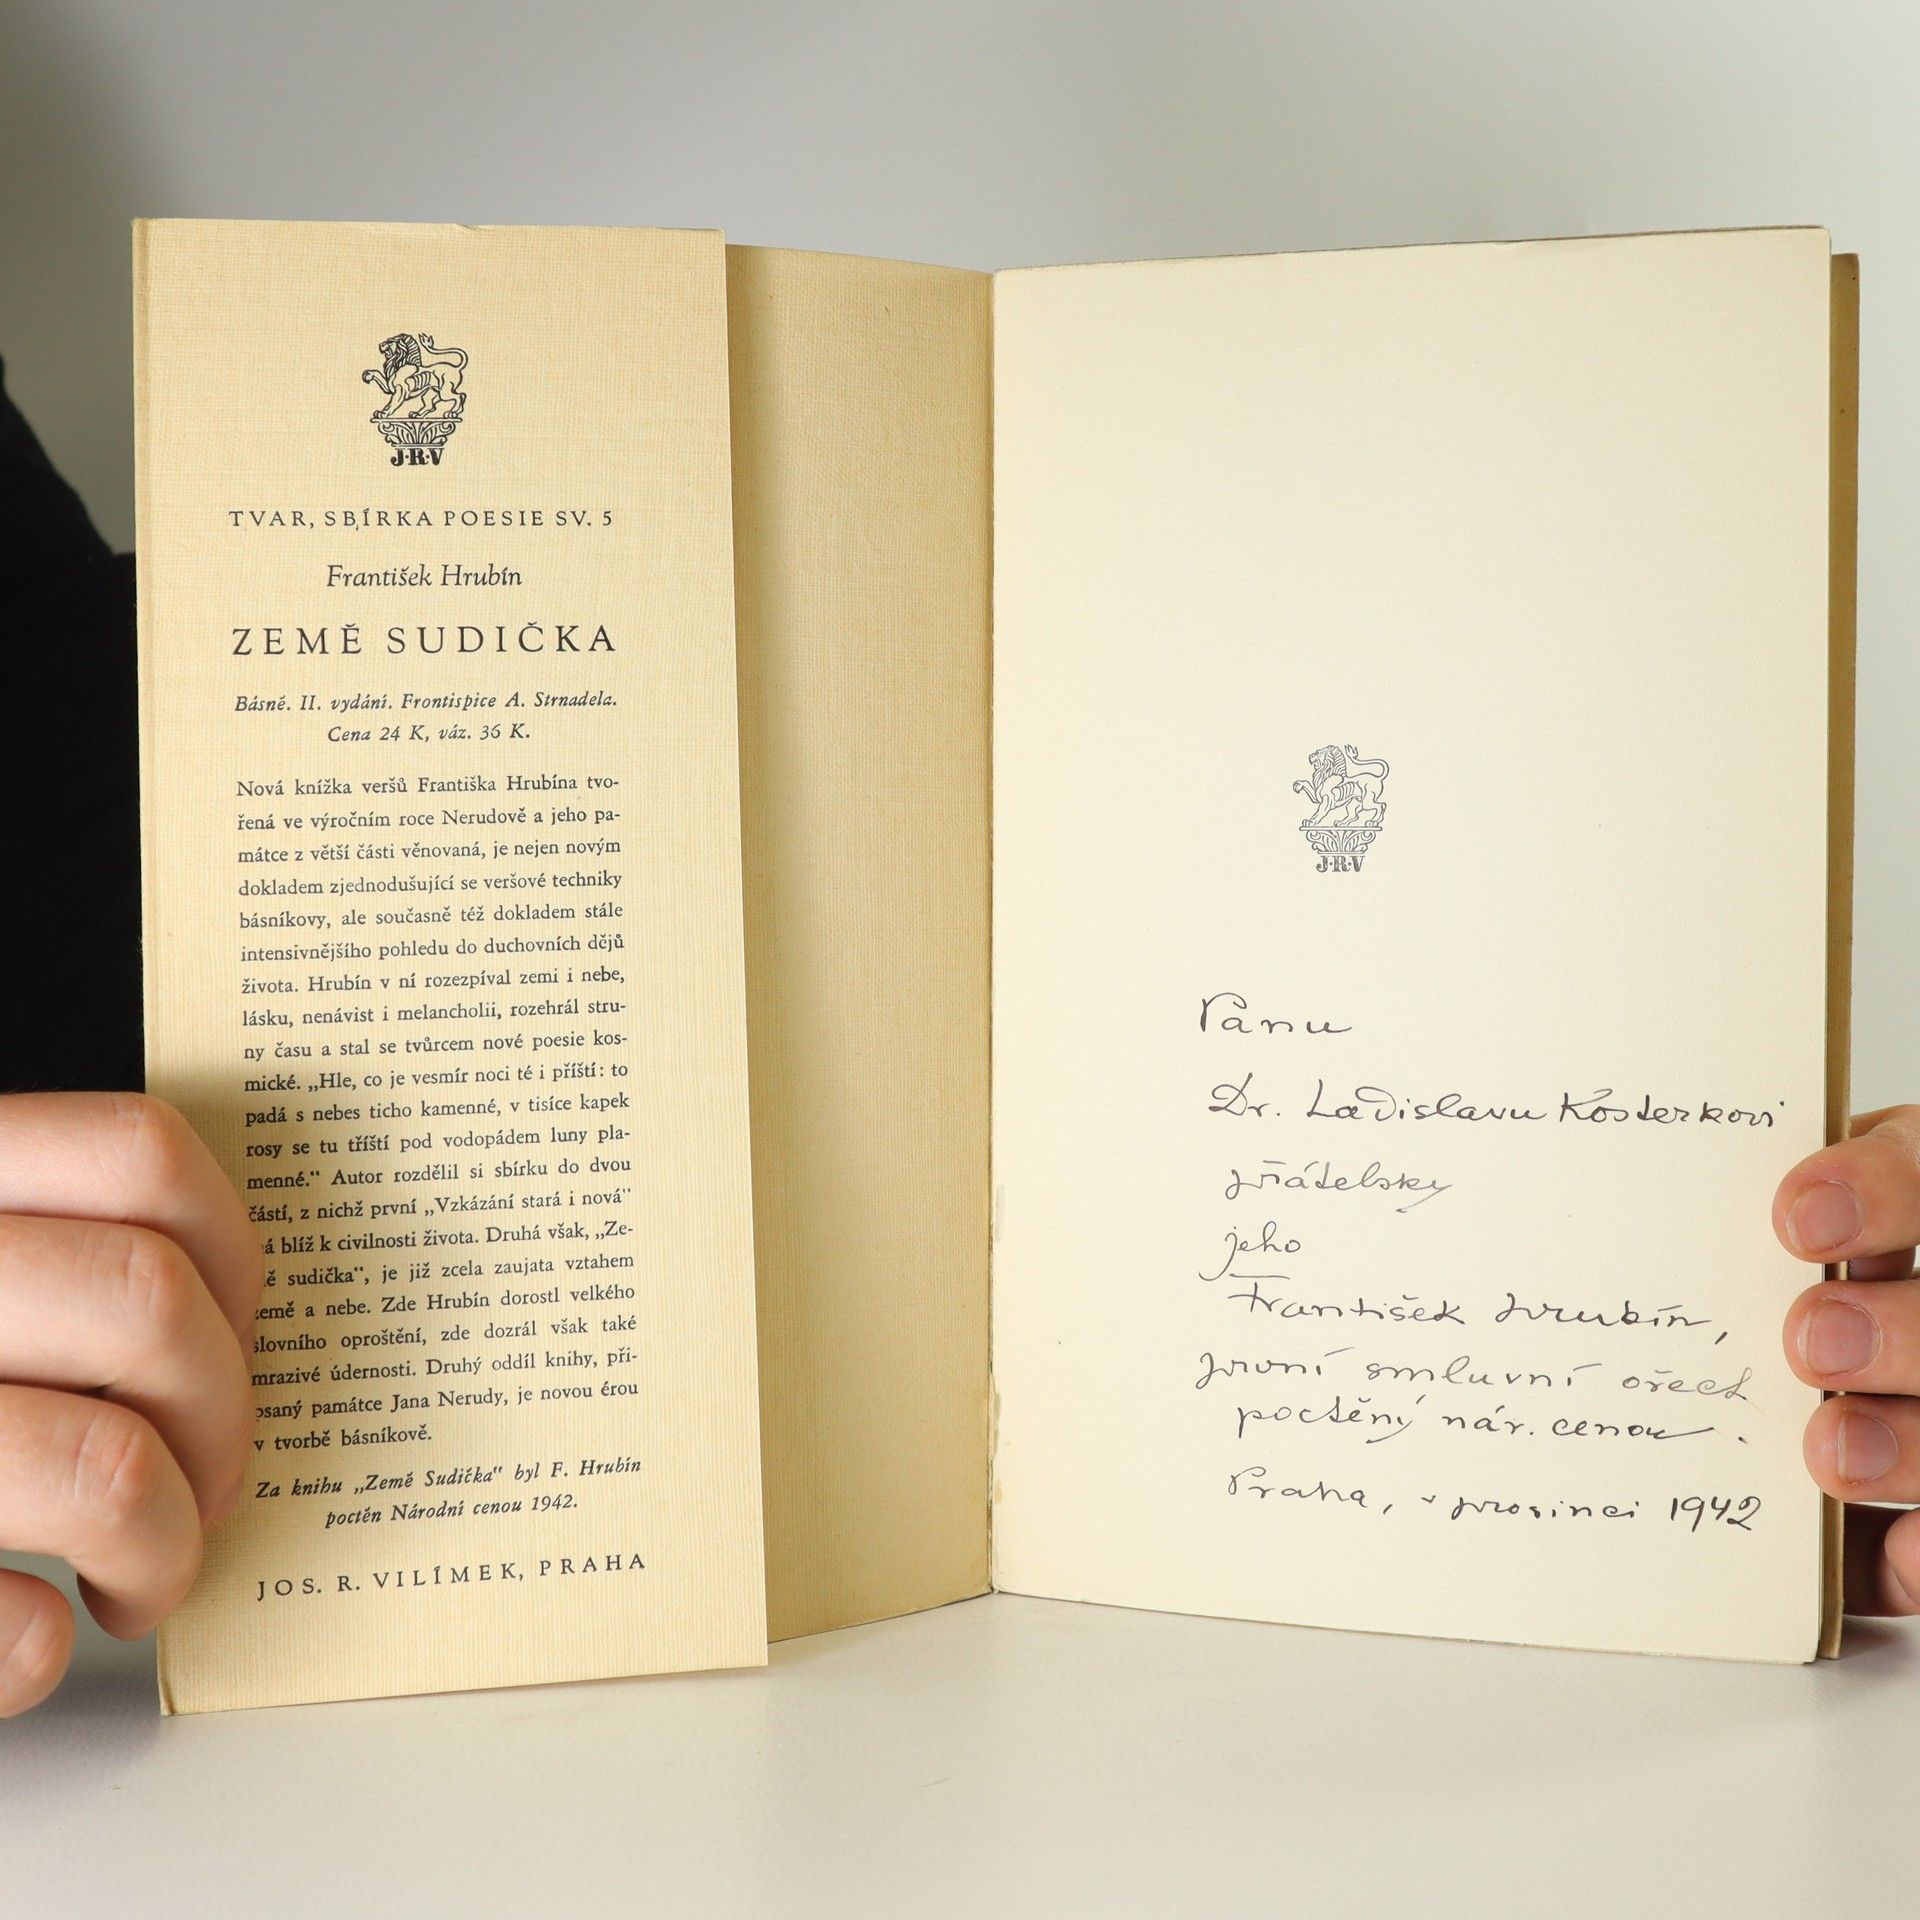 J·R·V
TVAR, SBÍRKA POESIE SV. 5
František Hrubín
ZEMĚ SUDIČKA
Básně. II. vydání. Frontispice A. Strnadela.
Cena 24 K, váz. 36 K.
Nová knížka veršů Františka Hrubína tvo-
řená ve výročním roce Nerudově a jeho pa-
mátce z větší části věnovaná, je nejen novým
dokladem zjednodušující se veršové techniky
básníkovy, ale současně též dokladem stále
intensivnějšího pohledu do duchovních dějů
života. Hrubín v ní rozezpíval zemi i nebe,
lásku, nenávist i melancholii, rozehrál stru-
ny času a stal se tvůrcem nové poesie kos-
mické. „Hle, co je vesmír noci té i příští: to
padá s nebes ticho kamenné, v tisíce kapek
rosy se tu tříští pod vodopádem luny pla-
menné." Autor rozdělil si sbírku do dvou
částí, z nichž první „Vzkázání stará i nová"
á blíž k civilnosti života. Druhá však, „Ze-
ě sudička", je již zcela zaujata vztahem
země a nebe. Zde Hrubín dorostl velkého
slovního oproštění, zde dozrál však také
mrazivé údernosti. Druhý oddíl knihy, při-
psaný památce Jana Nerudy, je novou érou
v tvorbě básníkově.
Za knihu „Země Sudička" byl F. Hrubín
poctěn Národní cenou 1942.
JOS. R. VILÍMEK, PRAHA
J·R·V
Panu
Dr. Ladislavu Kosterkovi
přátelsky
jeho
František Hrubín,
první smluvní ořech
poctěný nár. cenou.
Praha, v prosinci 1942